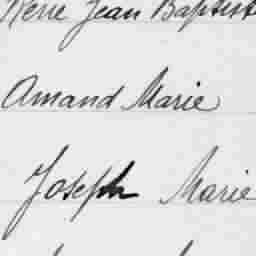 René Jean Baptist
Amand Marie
Joseph Marie